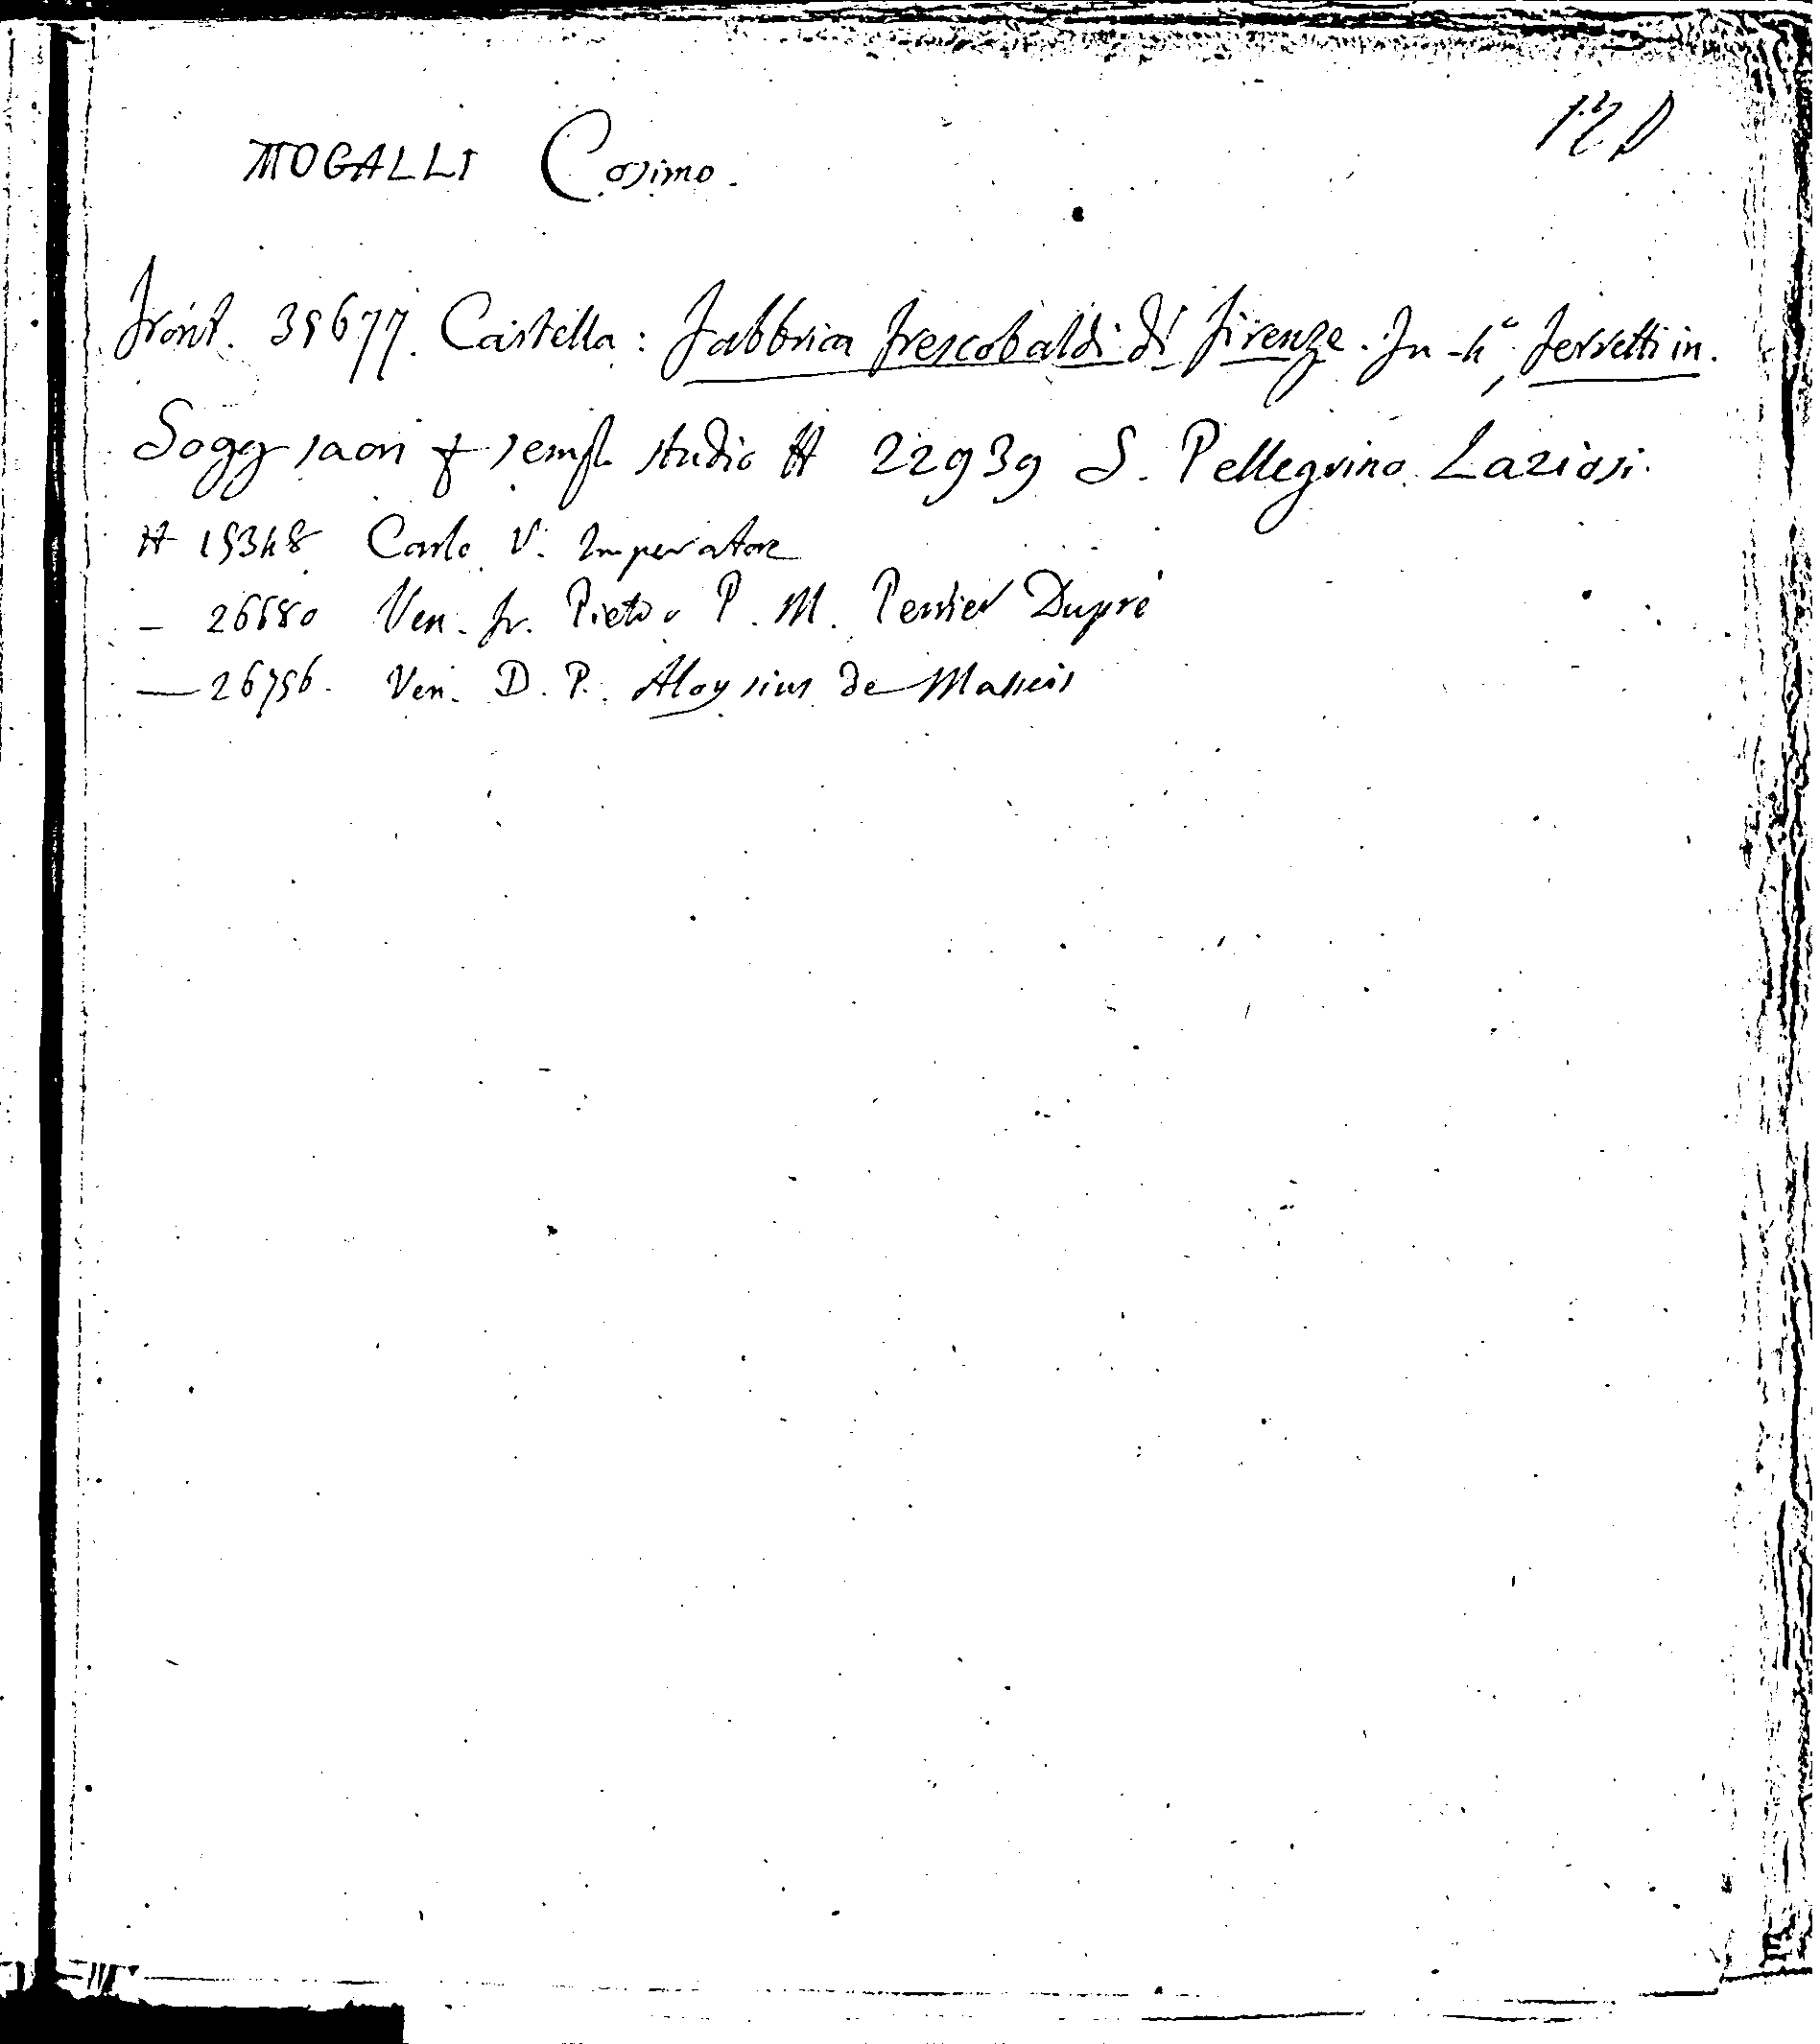 12 D
MOGALLI Cosimo.
Front. 35677. Castella: Fabbrica Frescobaldi di Firenze. In-4°, Ferretti in.
Sogg sacri studio H 22939 S. Pellegrino Laziosi.
H 15348 Carlo V. Imperatore
- 26680 Ven. Fr. Pietro P. M. Perrier Dupré
— 26756. Ven. D. P. Aloysius de Masseis